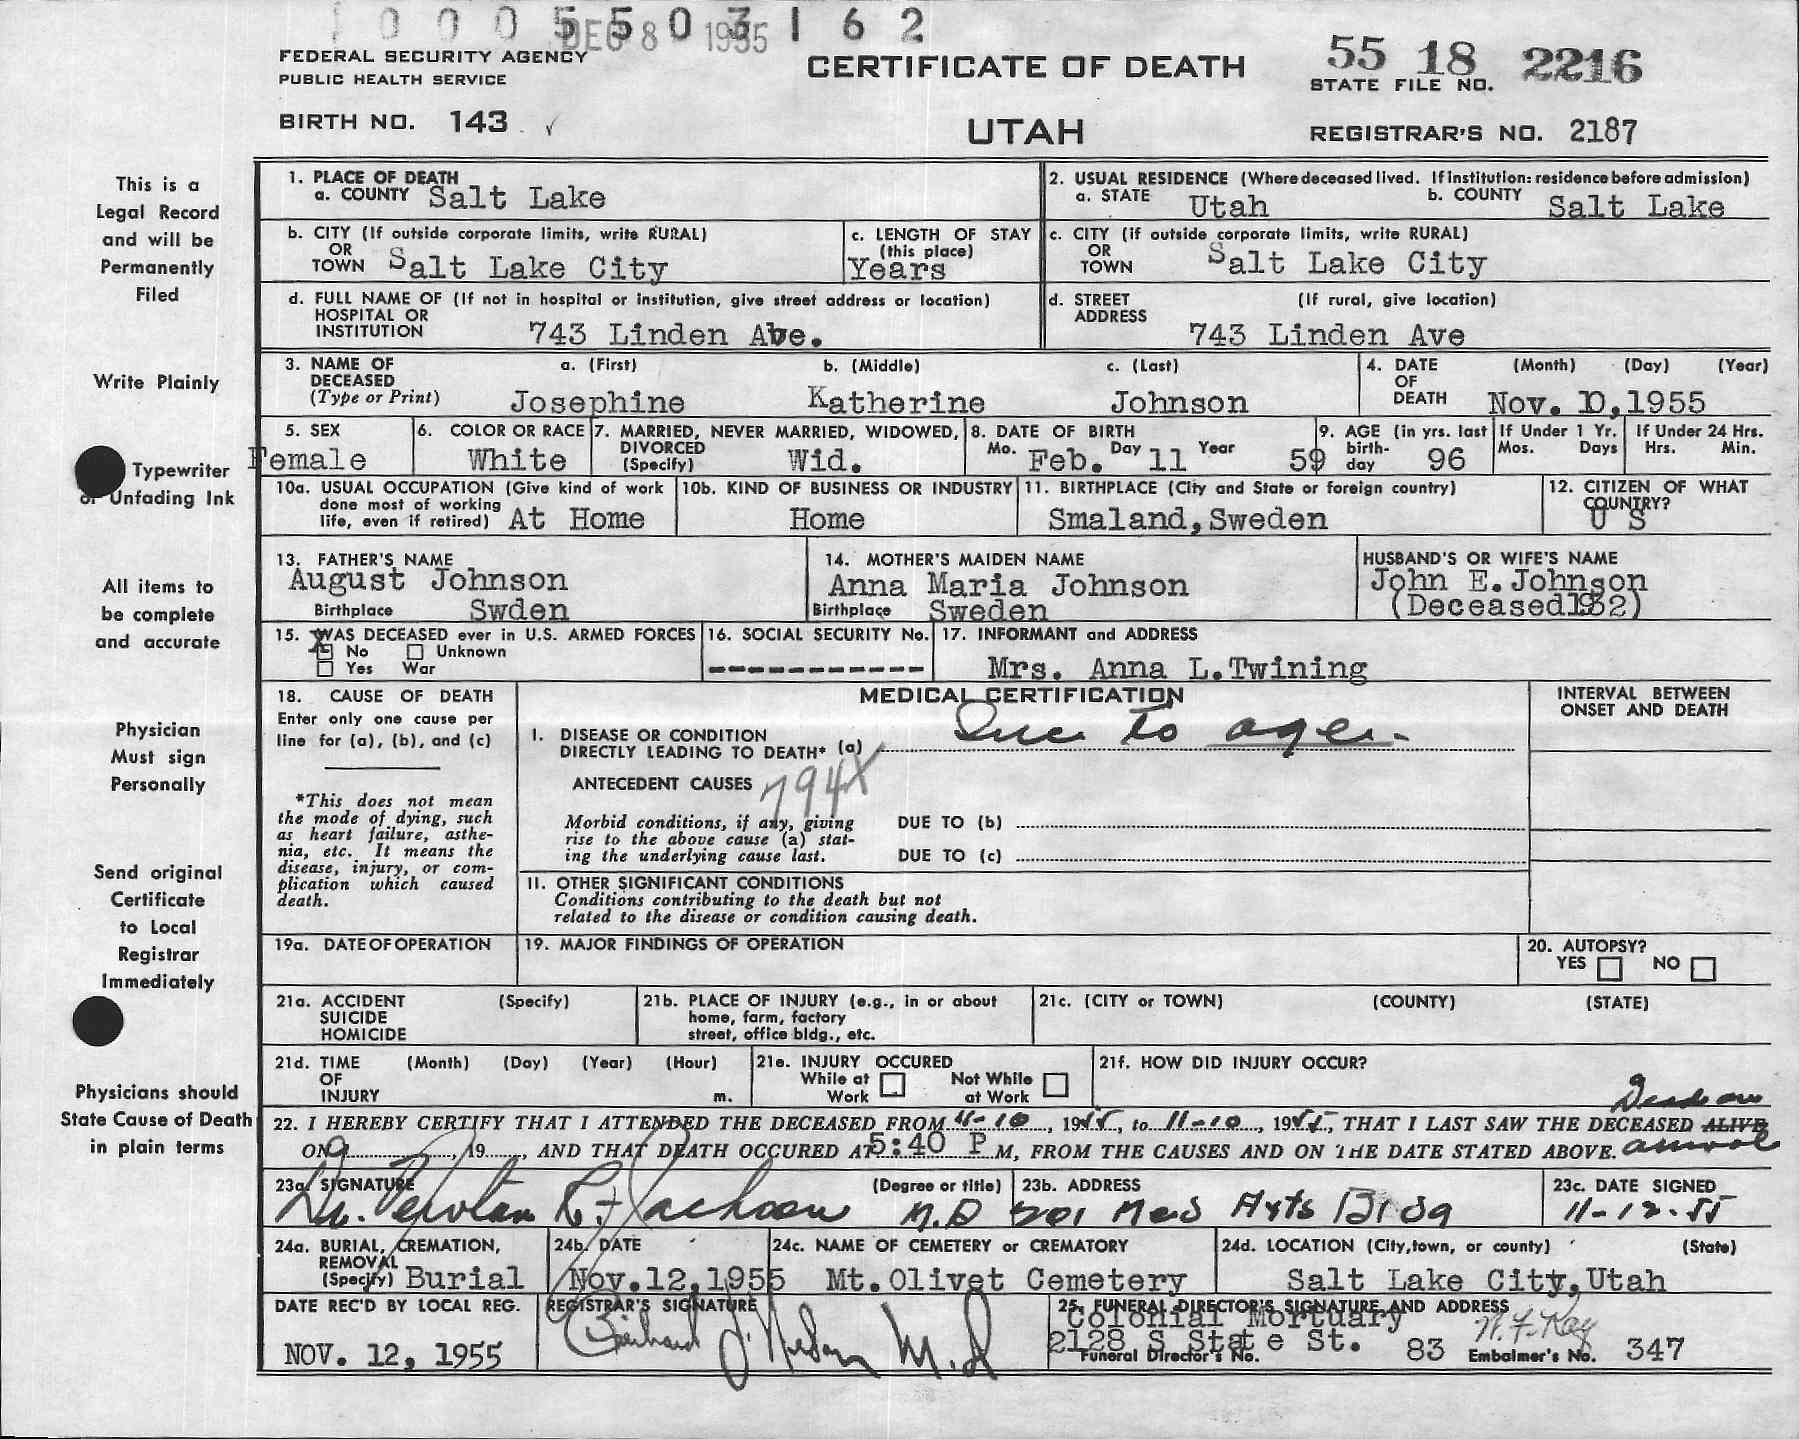 1 0 0 0 5 5 0 3 1 6 2
DEC 8 1955
FEDERAL SECURITY AGENCY
PUBLIC HEALTH SERVICE
CERTIFICATE OF DEATH
55 18 2216
STATE FILE NO.
BIRTH NO. 143
UTAH
REGISTRAR'S NO. 2187
This is a
Legal Record
and will be
Permanently
Filed
Write Plainly
Typewriter
or Unfading Ink
All items to
be complete
and accurate
Physician
Must sign
Personally
Send original
Certificate
to Local
Registrar
Immediately
Physicians should
State Cause of Death
in plain terms
1. PLACE OF DEATH
a. COUNTY Salt Lake
2. USUAL RESIDENCE (Where deceased lived. If institution: residence before admission)
a. STATE Utah b. COUNTY Salt Lake
b. CITY (If outside corporate limits, write RURAL)
OR
TOWN Salt Lake City
c. LENGTH OF STAY
(this place)
Years
c. CITY (if outside corporate limits, write RURAL)
OR
TOWN Salt Lake City
d. FULL NAME OF (If not in hospital or institution, give street address or location)
HOSPITAL OR
INSTITUTION 743 Linden Ave.
d. STREET (If rural, give location)
ADDRESS 743 Linden Ave
3. NAME OF a. (First) b. (Middle) c. (Last)
DECEASED
(Type or Print) Josephine Katherine Johnson
4. DATE (Month) (Day) (Year)
OF
DEATH Nov. 10,1955
5. SEX
Female
6. COLOR OR RACE
White
7. MARRIED, NEVER MARRIED, WIDOWED,
DIVORCED
(Specify) Wid.
8. DATE OF BIRTH
Mo. Feb. Day 11 Year 59
9. AGE (in yrs. last
birth-
day 96
If Under 1 Yr.
Mos. Days
If Under 24 Hrs.
Hrs. Min.
10a. USUAL OCCUPATION (Give kind of work
done most of working
life, even if retired) At Home
10b. KIND OF BUSINESS OR INDUSTRY
Home
11. BIRTHPLACE (City and State or foreign country)
Smaland,Sweden
12. CITIZEN OF WHAT
COUNTRY?
U S
13. FATHER'S NAME
August Johnson
Birthplace Swden
14. MOTHER'S MAIDEN NAME
Anna Maria Johnson
Birthplace Sweden
HUSBAND'S OR WIFE'S NAME
John E.Johnson
(Deceased1932)
15. WAS DECEASED ever in U.S. ARMED FORCES
X No Unknown
Yes War
16. SOCIAL SECURITY No.
-----------
17. INFORMANT and ADDRESS
Mrs. Anna L.Twining
18. CAUSE OF DEATH
Enter only one cause per
line for (a), (b), and (c)
*This does not mean
the mode of dying, such
as heart failure, asthe-
nia, etc. It means the
disease, injury, or com-
plication which caused
death.
MEDICAL CERTIFICATION
I. DISEASE OR CONDITION
DIRECTLY LEADING TO DEATH* (a) Due to age.
ANTECEDENT CAUSES 794X
Morbid conditions, if any, giving
rise to the above cause (a) stat-
ing the underlying cause last.
DUE TO (b)
DUE TO (c)
II. OTHER SIGNIFICANT CONDITIONS
Conditions contributing to the death but not
related to the disease or condition causing death.
INTERVAL BETWEEN
ONSET AND DEATH
19a. DATE OF OPERATION
19. MAJOR FINDINGS OF OPERATION
20. AUTOPSY?
YES NO
21a. ACCIDENT (Specify)
SUICIDE
HOMICIDE
21b. PLACE OF INJURY (e.g., in or about
home, farm, factory
street, office bldg., etc.
21c. (CITY or TOWN) (COUNTY) (STATE)
21d. TIME (Month) (Day) (Year) (Hour)
OF
INJURY m.
21e. INJURY OCCURED
While at Work Not While at Work
21f. HOW DID INJURY OCCUR?
Dead on
22. I HEREBY CERTIFY THAT I ATTENDED THE DECEASED FROM 11-10, 1955, to 11-10, 1955, THAT I LAST SAW THE DECEASED ALIVE
ON , 19 , AND THAT DEATH OCCURED AT 5:40 P M, FROM THE CAUSES AND ON THE DATE STATED ABOVE. arrival
23a. SIGNATURE (Degree or title)
Jackson M.D
23b. ADDRESS
701 Med Arts Bldg
23c. DATE SIGNED
11-12-55
24a. BURIAL, CREMATION,
REMOVAL
(Specify) Burial
24b. DATE
Nov.12,1955
24c. NAME OF CEMETERY or CREMATORY
Mt.Olivet Cemetery
24d. LOCATION (City,town, or county) (State)
Salt Lake City,Utah
DATE REC'D BY LOCAL REG.
NOV. 12, 1955
REGISTRAR'S SIGNATURE
M.D
25. FUNERAL DIRECTOR'S SIGNATURE AND ADDRESS
Colonial Mortuary
2128 S State St.
Funeral Director's No. 83 Embalmer's No. 347